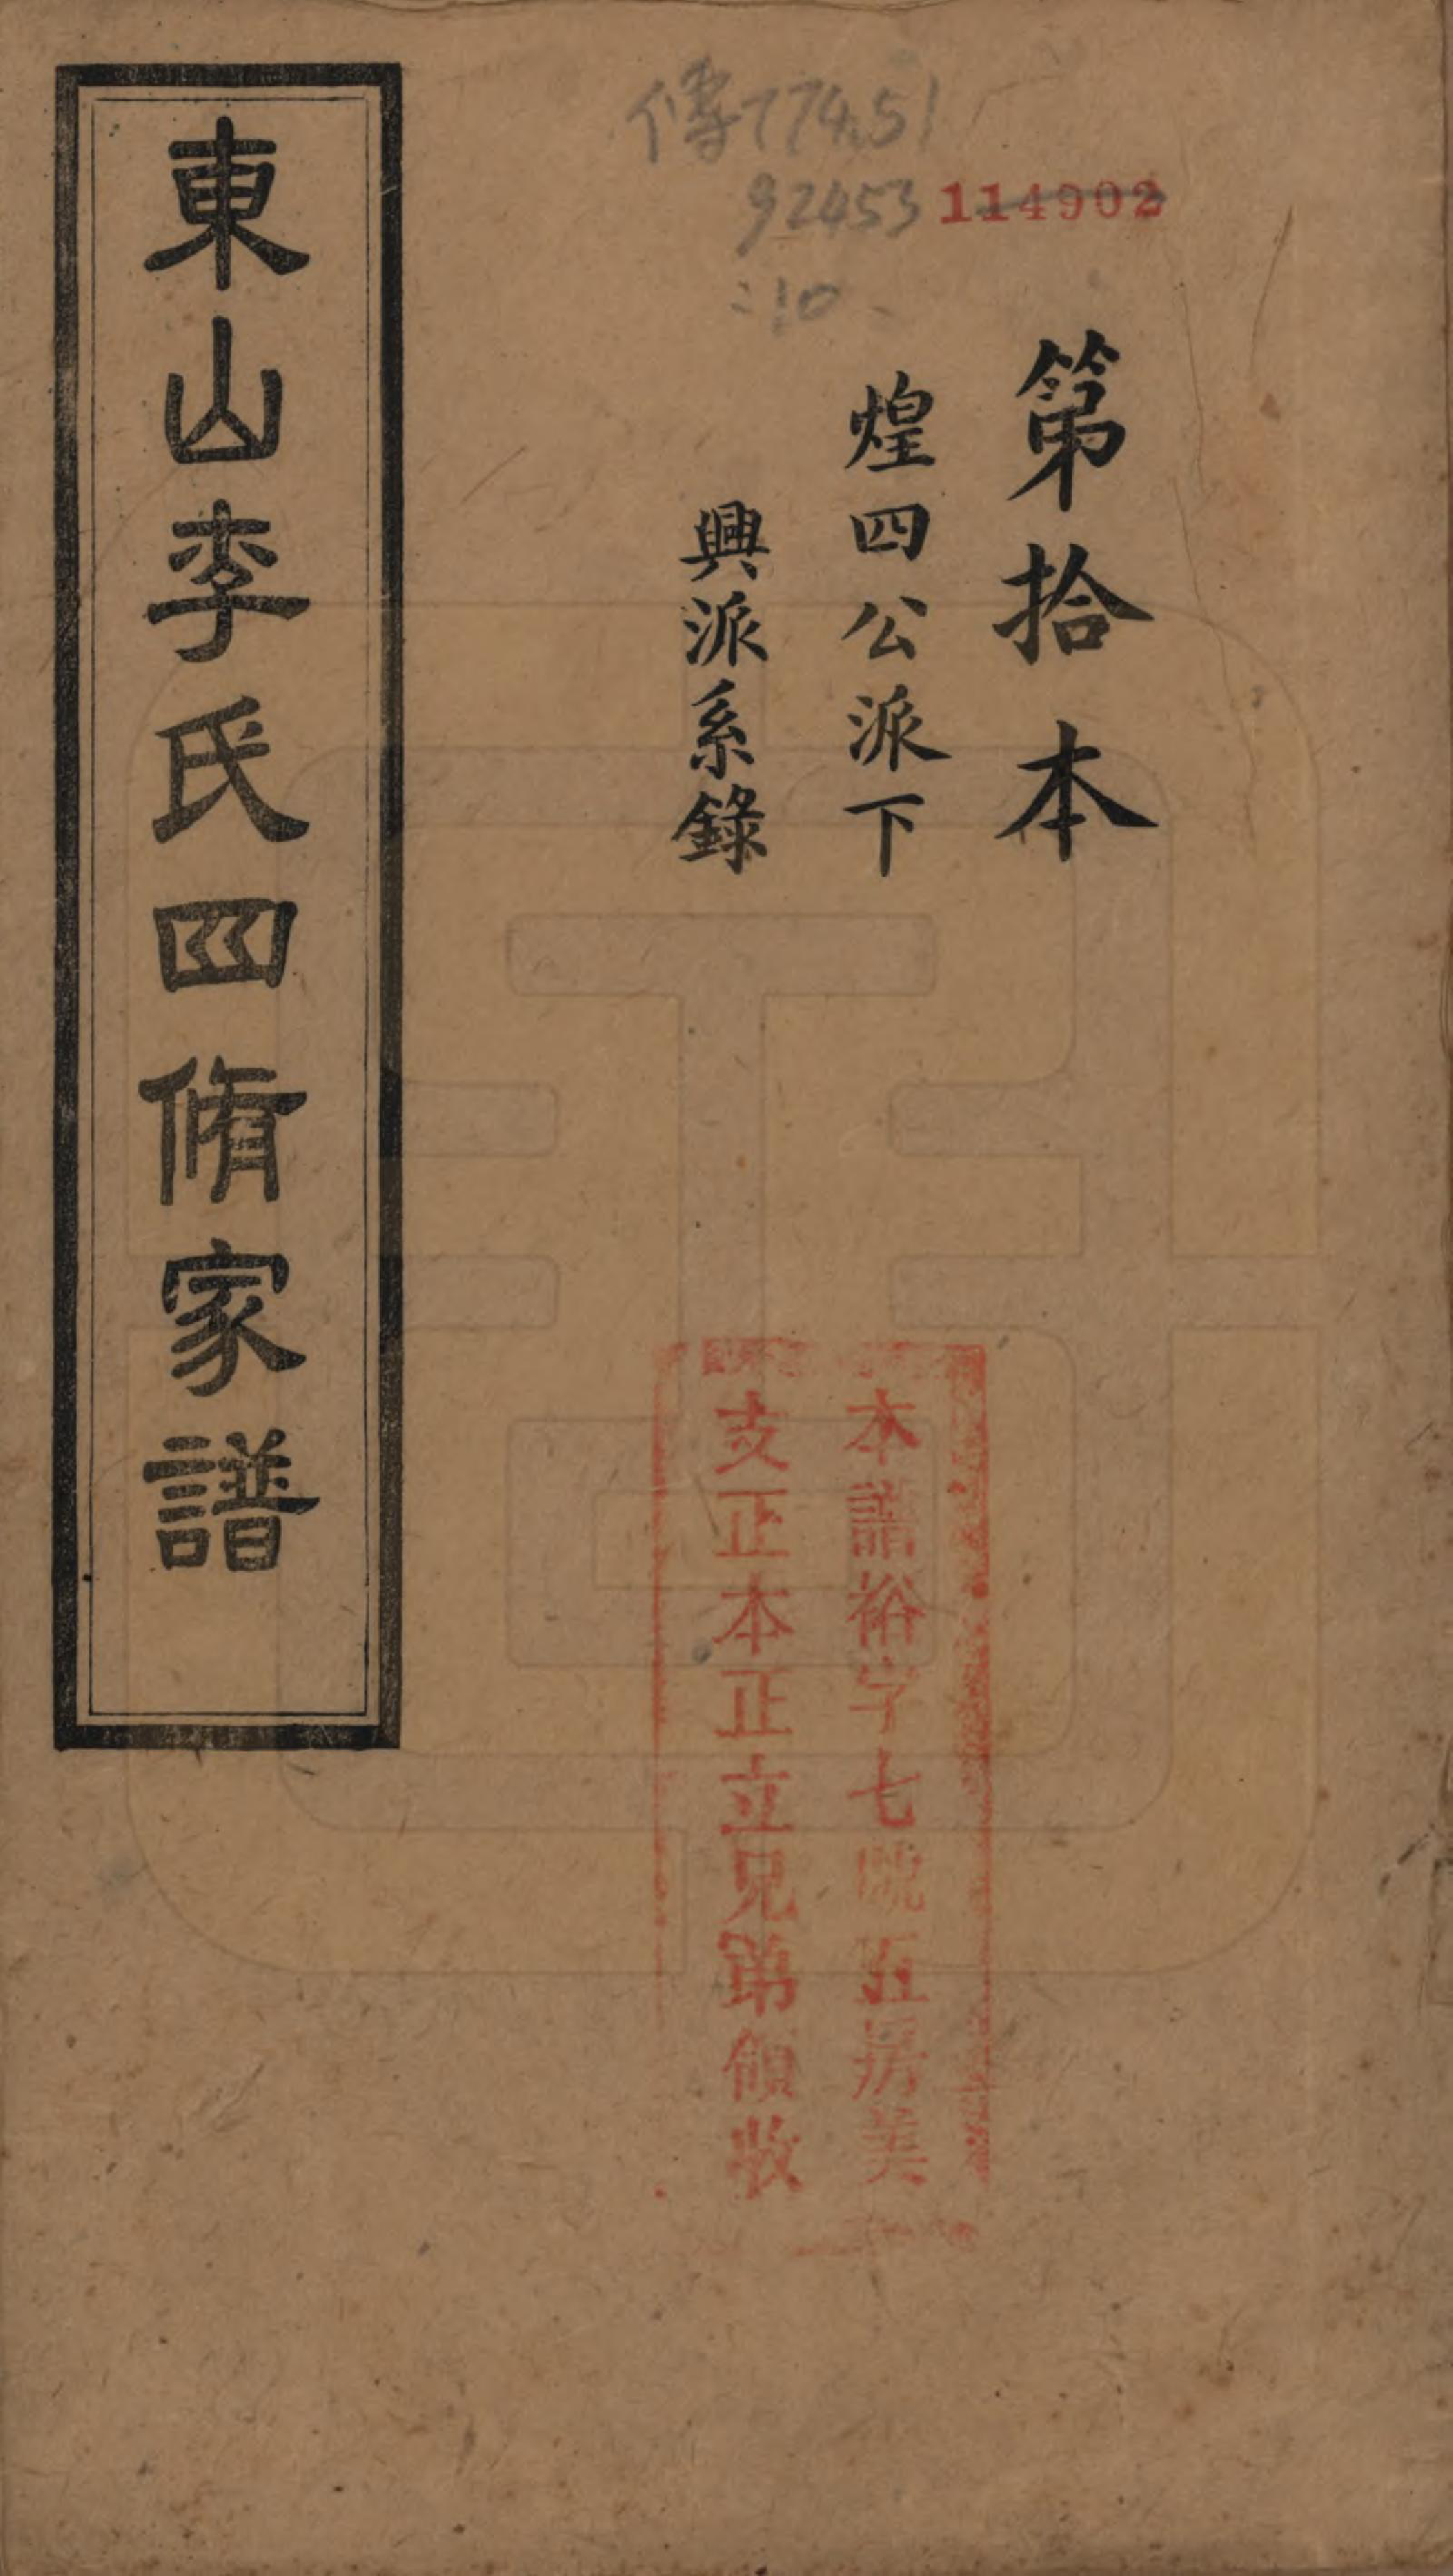 傳774.51
92453
114902
:10
第拾本
煌四公派下
興派系錄
本譜裕字七號五房美
支正本正立兄弟領收
東山李氏四脩家譜